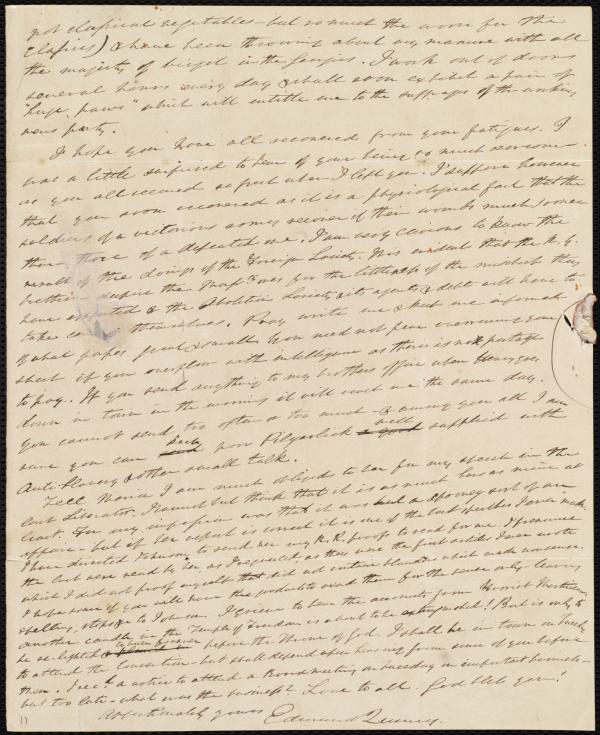 not classical vegetables - but so much the worse for the
Classics) & have been throwing about my manure with all
the majesty of Virgil in the Georgics. I work out of doors
several hours every day & shall soon exhibit a pair of
"huge paws" which will entitle me to the suffrages of the working
mens party.
I hope you have all recovered from your fatigues. I
was a little surprised to hear of your being so much overcome
as you all seemed so fresh when I left you. I suppose however
that you soon recovered as it is a physiological fact that the
soldiers of a victorious army recover of their wounds much sooner
than those of a defeated one. I am very curious to know the
result of the doings of the Foreign Society. It is evident that the N.Y.
brethren despise the Mass. ones for the of the mischief they
have & the Abolition Society & its agents & debts will have to
take care of themselves. Pray write me & let me
what paper great & small. You need not fear overrunning your
sheet if you overflow with intelligence as there is no postage
to pay. If you send anything to my brothers office when Henry goes
down in town in the morning it will reach me the same day.
You cannot send too often or too much - & among you all I am
sure you can keep poor Pilgarlick well supplied with
Anti Slavery & other small talk.
Tell Maria I am much obliged to her for my speech in the
last Liberator. I cannot but think that it is as much hers as mine at
least. For my impression was that it was but a sort of an
affair - but if her report is correct it is one of the best speeches I ever made.
I have directed Johnson to send her my R.R. proofs to read for me. I
the last were read by her, as I requested, as they were the first articles I ever wrote
which I did not proof myself that did not contain blunders which made nonsense.
I hope some of you will have the goodness to read them for the sense only - leaving
spelling, stops &c to Johnson. I grieve to hear the accounts from Harriet Martineau,
another candle in the Temple of Freedom is about to be extinguished! But is only to
be re-lighted to burn forever before the Throne of God. I shall be in town on Tuesday
to attend the Convention - but shall depend upon hearing from some of you before
then. I recd. a notice to attend a Board meeting on Tuesday on important business -
but too late - what was the business? Love to all. God bless you!
Affectionately yours
Edmund Quincy.
11